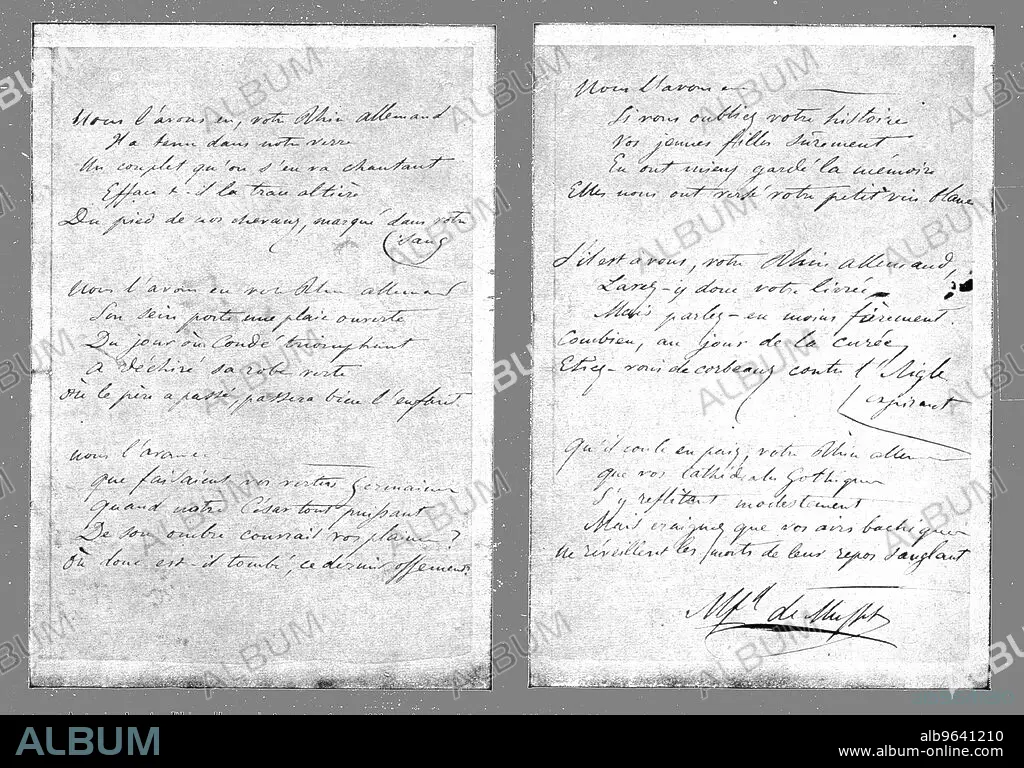 Nous l'avons eu, votre Rhin allemand
Il a tenu dans notre verre
Un couplet qu'on s'en va chantant
Efface-t-il la trace altière
Du pied de nos chevaux, marqué dans votre
sang
Nous l'avons eu votre Rhin allemand
Son sein porte une plaie ouverte
Du jour où Condé triomphant
A déchiré sa robe verte
Où le père a passé, passera bien l'enfant.
Nous l'avons
que faisaient vos vertus germaines
Quand notre César tout puissant
De son ombre couvrait vos plaines ?
Où donc est-il tombé, ce dernier ossement
Nous l'avons eu
Si vous oubliez votre histoire
Vos jeunes filles sûrement
En ont mieux gardé la mémoire
Elles nous ont versé votre petit vin blanc
S'il est à vous, votre Rhin allemand,
Lavez-y donc votre livrée
Mais parlez-en moins fièrement.
Combien, au jour de la curée,
Etiez-vous de corbeaux contre l'Aigle
expirant
Qu'il coule en paix, votre Rhin allemand
que vos cathédrales Gothiques
S'y reflètent modestement
Mais craignez que vos airs bachiques
Ne réveillent les morts de leur repos sanglant
Alfd de Musset
ALBUM
alb9641210
www.album-online.com